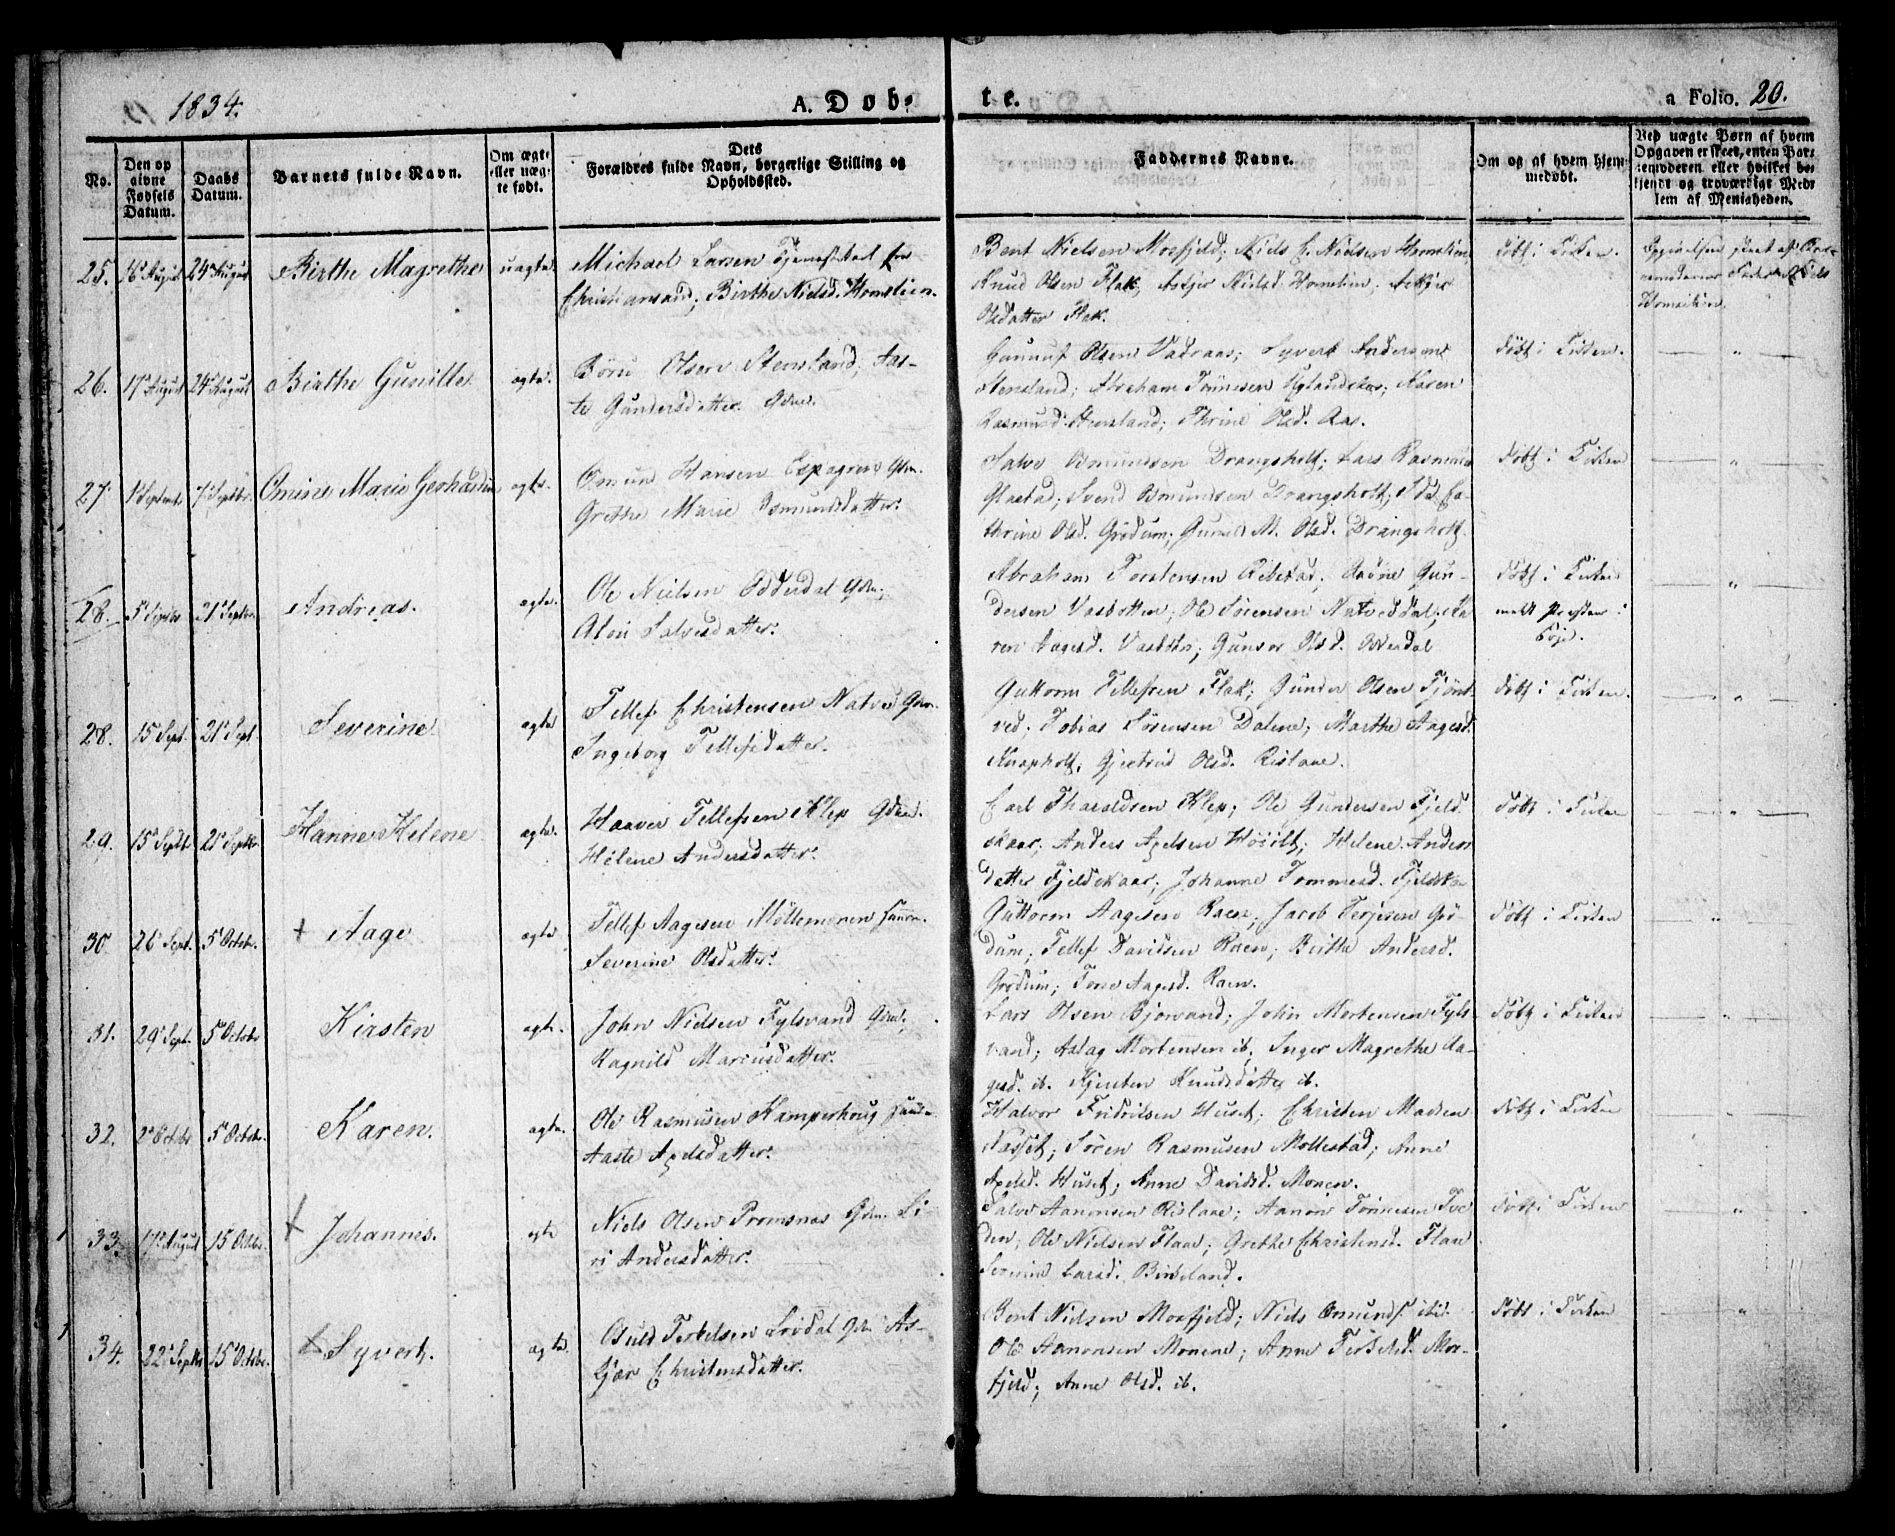 1834.
A. Døb-
te.
a Folio. 20.
No.
Den op
givne
Fødsels
Datum.
Daabs
Datum.
Barnets fulde Navn.
Om ægte
eller uæg-
te født.
Dets
Forældres fulde Navn, borgerlige Stilling og
Opholdssted.
Faddernes Navne.
Om og af hvem hjem-
medøbt.
Ved uægte Børn af hvem
Opgaven er skeet, enten Bar-
nemoderen eller hvilket be-
kjendt og troværdigt Med-
lem af Menigheden.
25. 16 August 24 August Birthe Magrethe uagte.
Michael Larsen Tjenestekarl fra
Christiansand; Birthe Nielsd. Homstien.
Bent Nielsen Mosfjeld; Niels E. Nielsen Homstien;
Knud Olsen Flak; Askjer Nielsd Homstien; Askjer
Olsdatter Flak.
døbt i Kirken.
26. 17 August 24 August Birthe Gunille agte.
Børu Olsen Stensland; Aas-
te Gundersdatter. Gdm.
Gunnuf Olsen Vadraas; Syvert Andersen
Stensland; Abraham Tönnesen Uglandskar; Karen
Rasmusd. Stensland; Thrine Olsd. Aas.
døbt i Kirken.
27. 1 Septemb 7 Septbr. Omine Marie Gerhardin agte.
Omund Hansen Espegren Gdm.
Grethe Marie Osmundsdatter.
Salve Osmundsen Drangsholt; Lars Rasmus
Glastad; Svend Osmundsen Drangsholt; Ida Ca-
thrine Olsd. Grödum; Gunild M. Olsd. Drangsholt.
døbt i Kirken
28. 5 Septbr 21 Septbr. Andreas. agte.
Ole Nielsen Odderdal Gdm;
Aloii Salvesdatter.
Abraham Torstensen Ribestad; Aadne Gun-
dersen Vasbotten; Ole Sörensen Natveddal; Ka-
ren Aagesd. Vasbotn; Gunvor Olsd. Odderdal
døbt i Kirken
28. 15 Sept. 21 Sept. Severine agte
Tellef Christensen Natved Gdm.
Ingeborg Tellefsdatter.
Guttorm Tellefsen Flak; Gunder Olsen Tjöm-
ved; Tobias Sörensen Dalene; Marthe Aagesd.
Knapholt; Gjertrud Olsd. Rislaae.
døbt i Kirken.
29. 15 Septb. 21 Septbr. Hanne Helene agte.
Haaver Tellefsen Klep Gdm.
Helene Andersdatter.
Carl Tharaldsen Klep; Ole Gundersen Fjeld-
skaar; Anders Axelsen Höiilt; Helene Anders-
datter Fjeldskaar; Johanne Tommesd. Fjeldska
døbt i Kirken
30 26 Sept. 5 Octobr. + Aage agte
Tellef Aagesen Möllemonen
Severine Olsdatter.
Guttorm Aagesen Raen; Jacob Terjesen Grö-
dum; Tellef Davidsen Raen; Birthe Andersd.
Grödum; Tone Aagesd. Raen.
døbt i Kirken
31. 29 Sept. 5 Octobr Kirsten agte.
John Nielsen Fylsvand Gdm;
Ragnild Marcusdatter.
Lars Olsen Bjorvand; John Mortensen Fyls-
vand; Aslag Mortensen ib; Inger Magrethe Aa-
gesd. ib. Kjersten Knudsdatter ib.
døbt i Kirken
32. 2 Octbr 5 Octobr. Karen. agte.
Ole Rasmusen Kamperhoug
Aaste Axelsdatter.
Halvor Fridrilsen Huset; Christen Madsen
Næsset; Sören Rasmusen Mollestad; Anne
Axelsd. Huset; Anne Davidsd. Monen.
døbt i Kirken
33. 17 August 15 Octbr. + Johannes. agte
Niels Olsen Promsnas Gdm. Li-
vi Andersdatter.
Salve Aanonsen Rislaae; Aanon Tönnesen Tve
den; Ole Nielsen Flaae; Grethe Christensd. Flaae
Larsd. Birkeland.
døbt i Kirken
34. 22 Septbr 15 Octobr. + Syvert. agte.
Osuld Terkelsen Lrödal Gdm As-
kjær Christensdatter.
Bent Nielsen Mosfjeld; Niels Omunds. ibid.
Ole Aanonsen Monene; Anne Terkelsd. Mos-
fjeld; Anne Olsd. ib.
døbt i Kirken